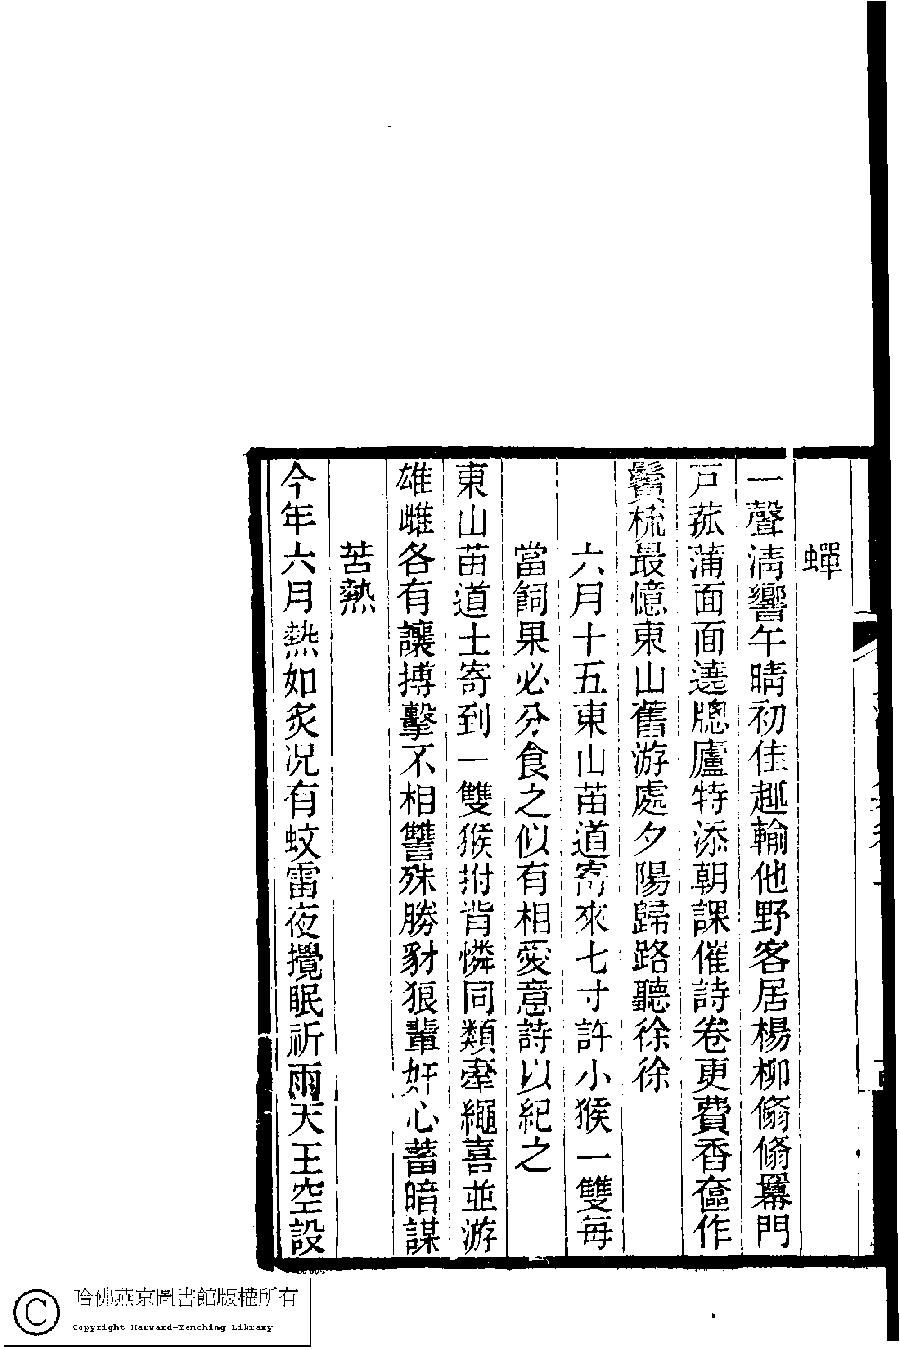 蟬
一聲淸響午晴初佳趣輸他野客居楊柳翛翛羃門
戸菰蒲面面遶牕廬特添朝課催詩卷更費香奩作
鬢梳最憶東山舊游處夕陽歸路聽徐徐
六月十五東山苗道寄來七寸許小猴一雙每
當飼果必分食之似有相愛意詩以紀之
東山苗道士寄到一雙猴拊背憐同類牽繩喜並游
雄雌各有讓搏擊不相讐殊勝豺狼輩奸心蓄暗謀
苦熱
今年六月熱如炙况有蚊雷夜攪眠祈雨天王空設
哈佛燕京圖書館版權所有
Copyright Harvard-Yenching Library